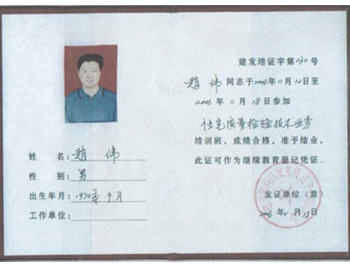 建发培证字第090号
赵伟同志于2006年11月12日至
2006年11月18日参加
住宅质量检验技术业务
培训班，成绩合格，准予结业，
此证可作为继续教育登记凭证。
发证单位（章
2006年11月18日
姓名：赵伟
性别：男
出生年月：1970年9月
工作单位：